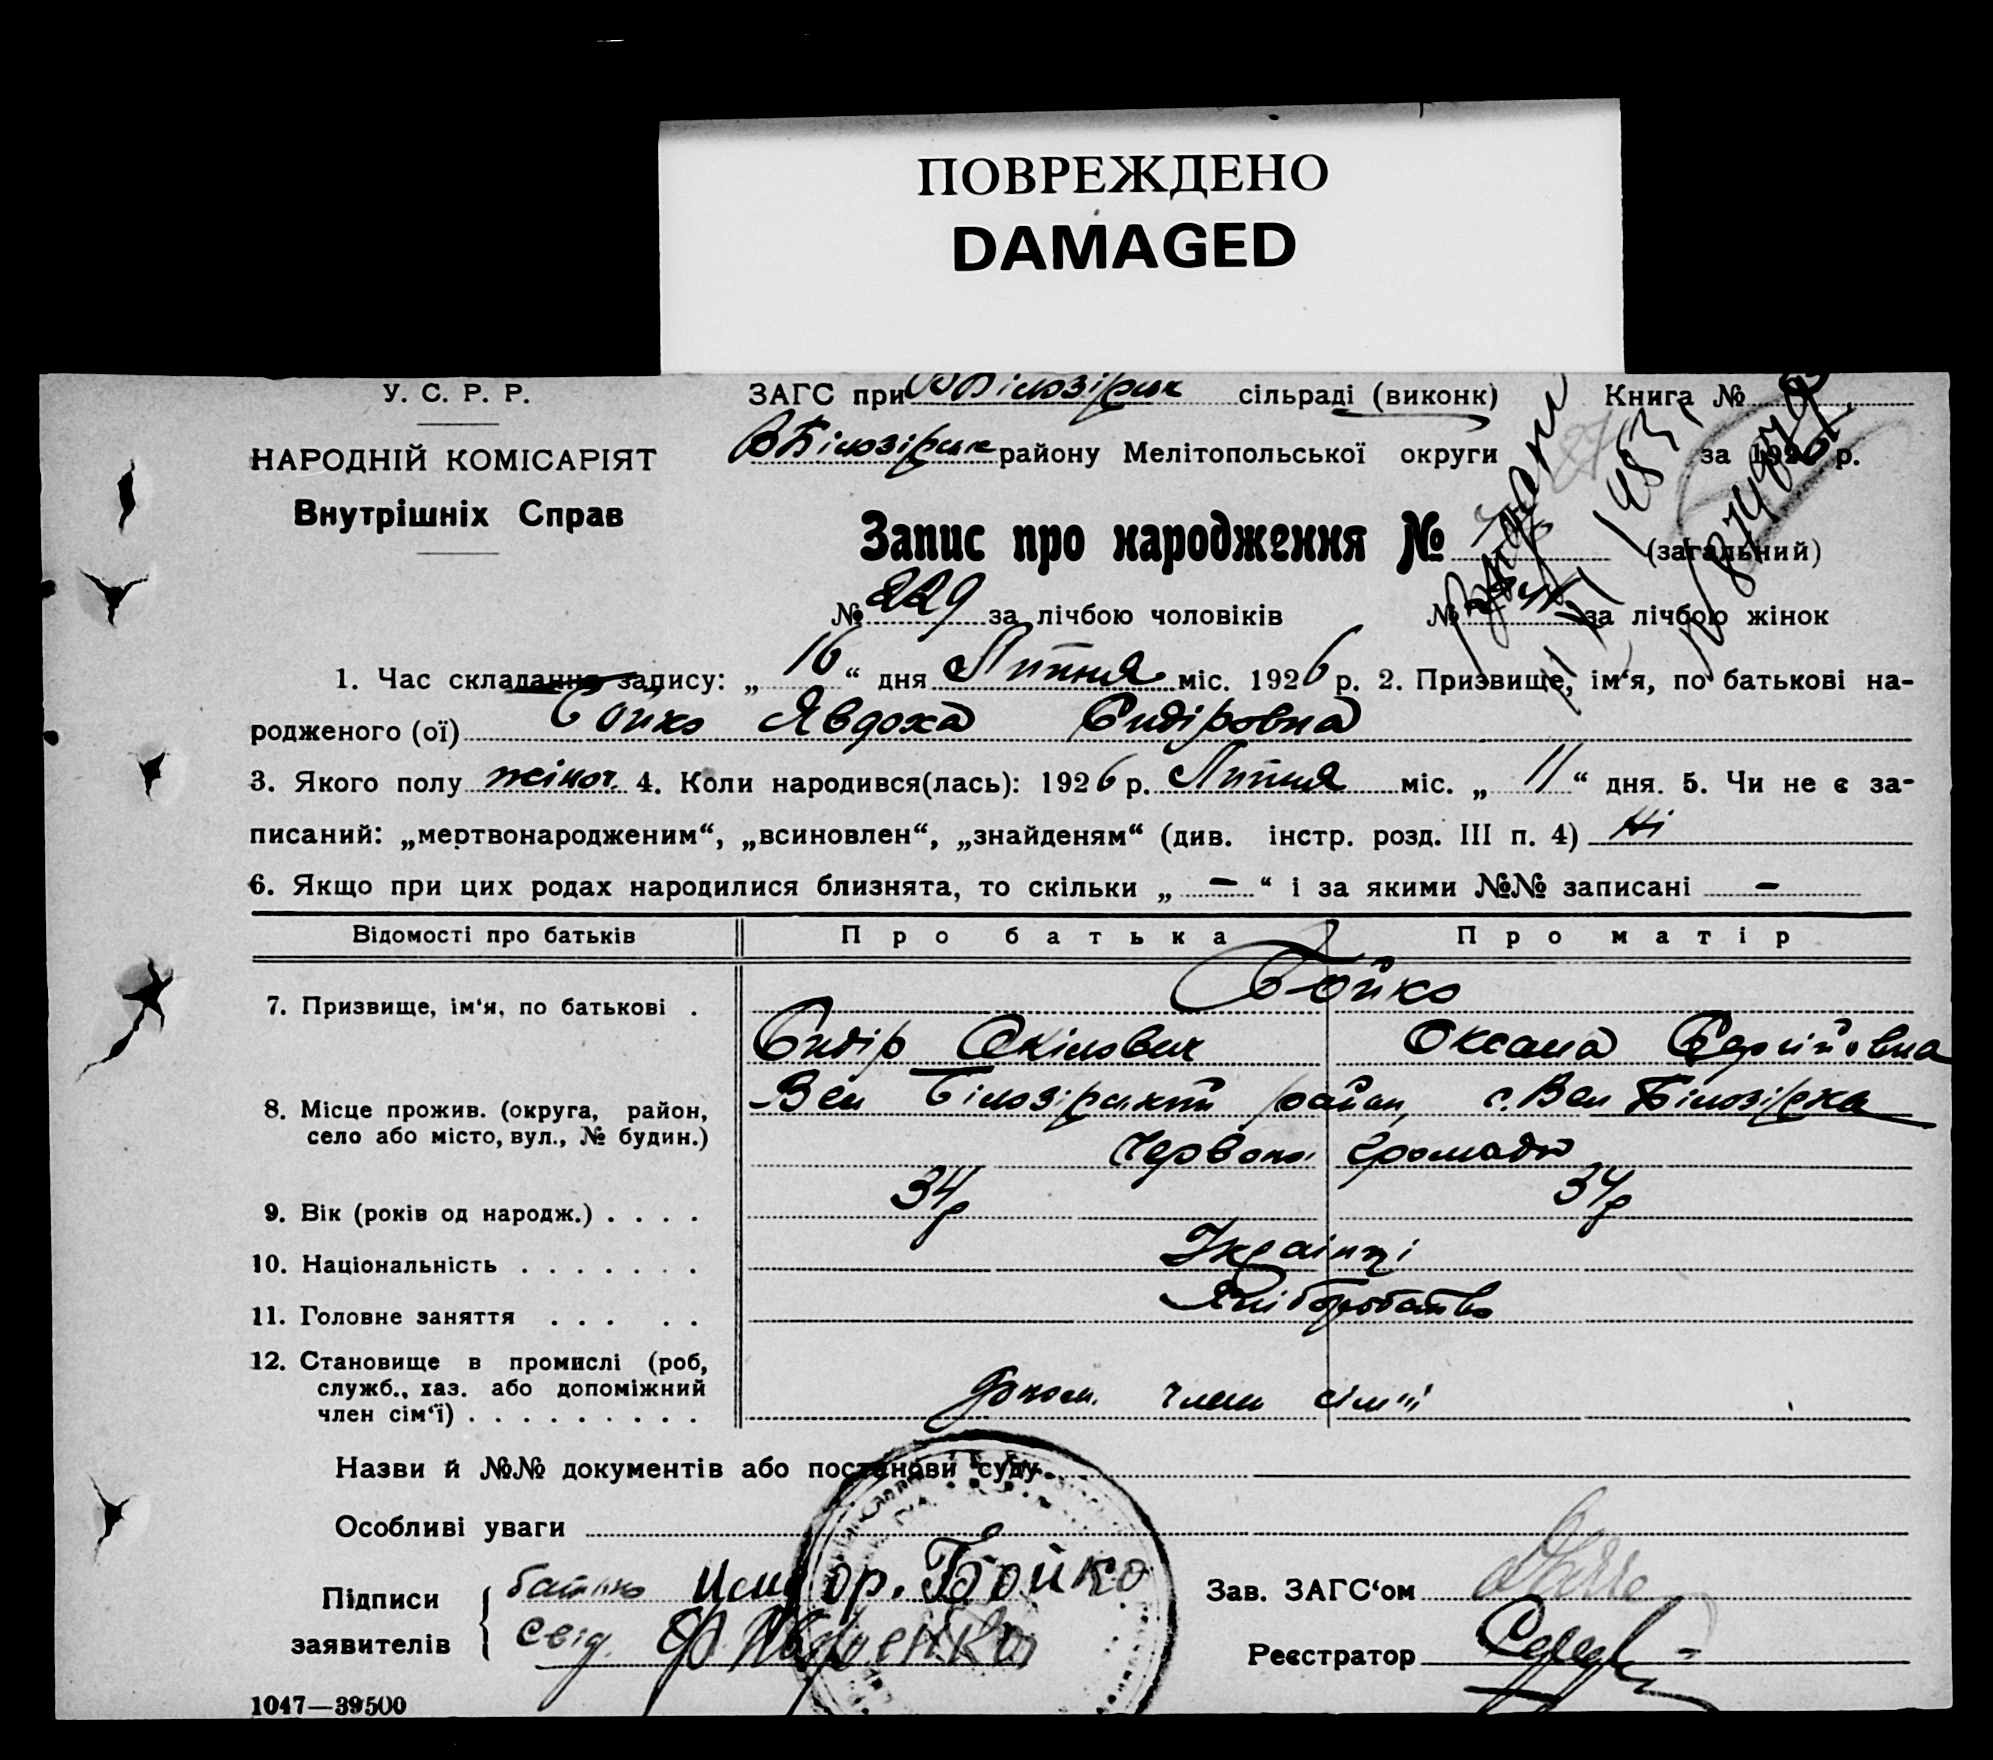 ПОВРЕЖДЕНО
DAMAGED
У. С. Р. Р.
НАРОДНІЙ КОМІСАРІЯТ
Внутрішніх Справ
ЗАГС при В Білозірськ сільраді (виконк)
В Білозірськ району Мелітопольської округи
Книга №
за 1926 р.
Запис про народження № (загальний)
№ 229 за лічбою чоловіків № за лічбою жінок
1. Час складання запису: „ 16 “ дня Липня міс. 1926 р. 2. Призвище, ім‘я, по батькові на-
родженого (ої) Бойко Явдоха Сидіровна
3. Якого полу жіноч. 4. Коли народився(лась): 1926 р. Липня міс. „ 11 “ дня. 5. Чи не є за-
писаний: „мертвонародженим“, „всиновлен“, „знайденям“ (див. інстр. розд. III п. 4) Ні
6. Якщо при цих родах народилися близнята, то скільки „ – “ і за якими №№ записані –
Відомості про батьків Про батька Про матір
7. Призвище, ім‘я, по батькові . Бойко
Сидір Оксана Сергійовна
8. Місце прожив. (округа, район,
село або місто, вул., № будин.)
Вел Білозірський район, с. Вел Білозірка
Червоної громади
9. Вік (років од народж.) . . . . 34 р 34 р
10. Національність . . . . . . . Українці
11. Головне заняття . . . . . Хліборобство
12. Становище в промислі (роб,
служб., хаз. або допоміжний
член сім‘ї) . . . . . . . . . допом. член сім'ї
Назви й №№ документів або постанови суду
Особливі уваги
Підписи
заявителів
батько Исидор. Бойко
Свід.
Зав. ЗАГС‘ом
Реєстратор
1047—39500